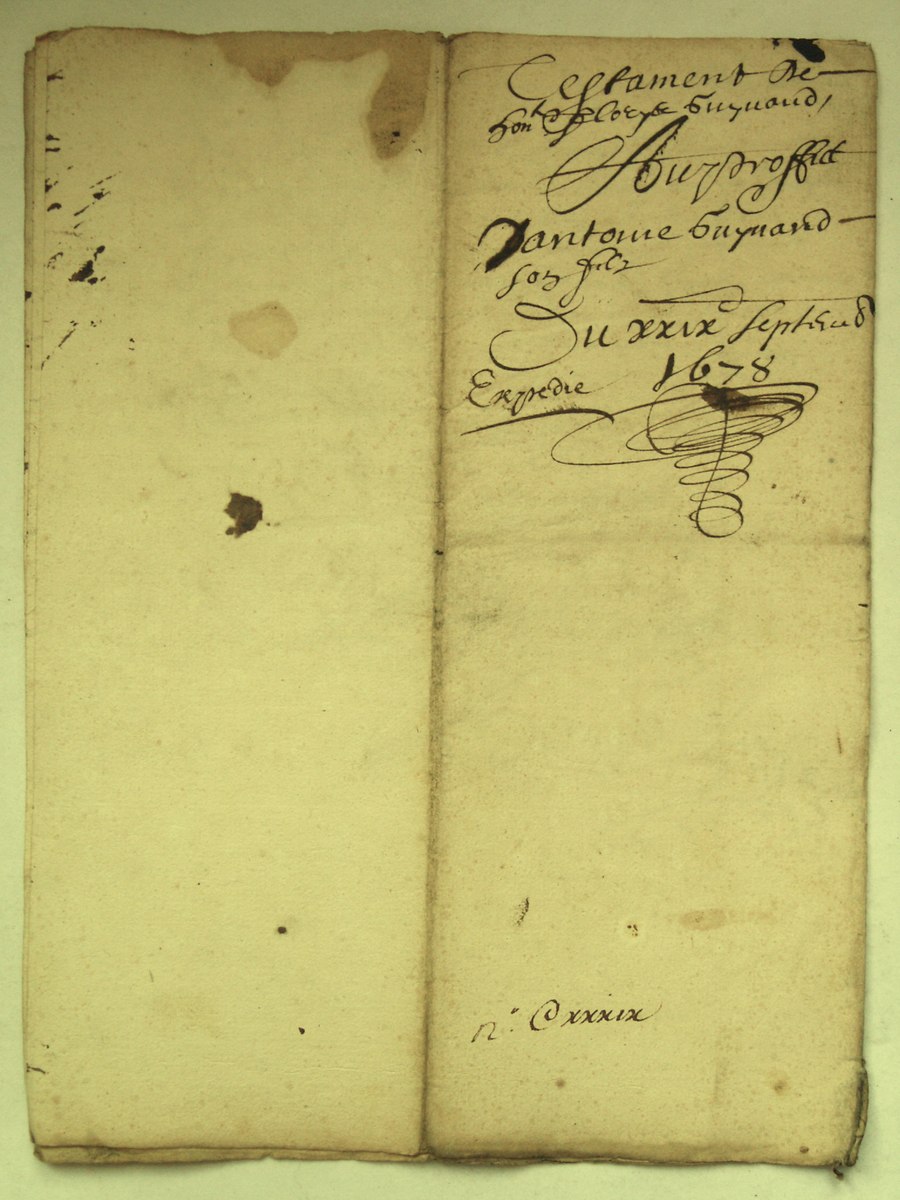 Testament de
hon.t Eloyse Guynand,
Au proffict
Dantoine Guynand
son filz
Du xxix septemb
1678
Expedie
n.o Cxxxix